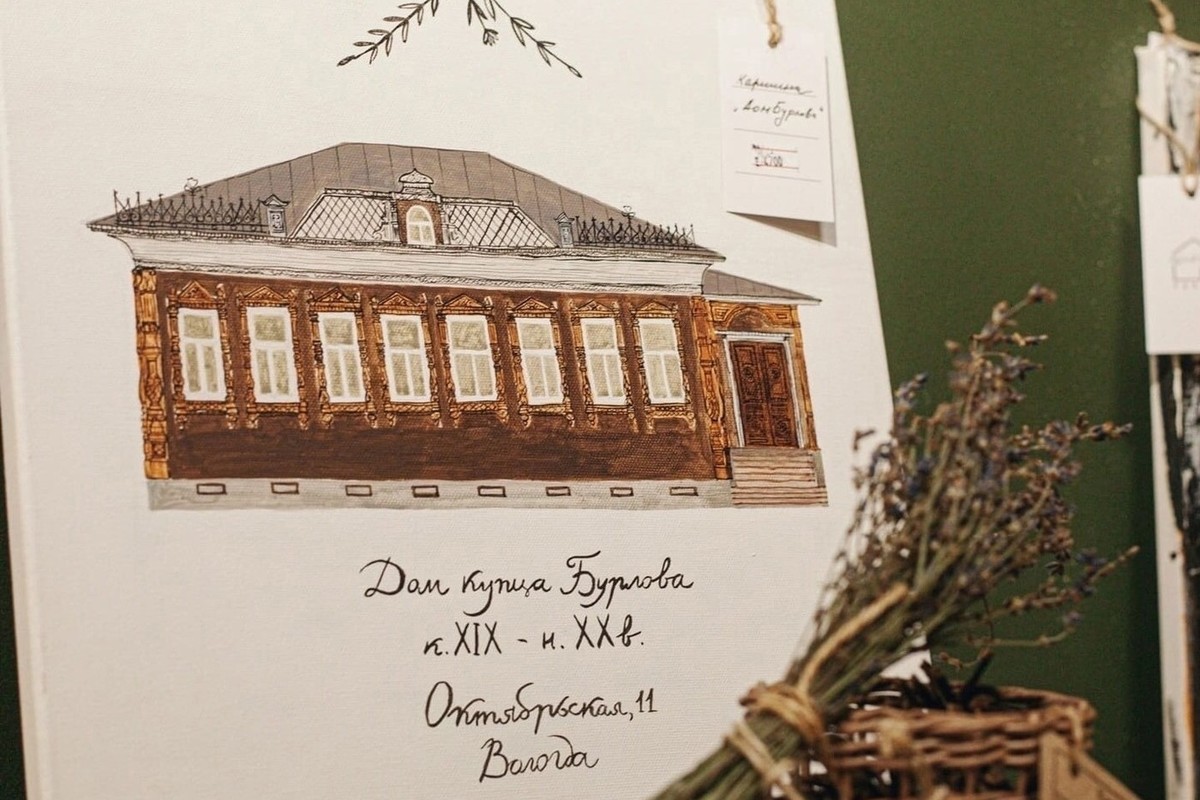 Картина
„Дом Бурлова"
Дом купца Бурлова
к. XIX - н. XX в.
Октябрьская, 11
Вологда